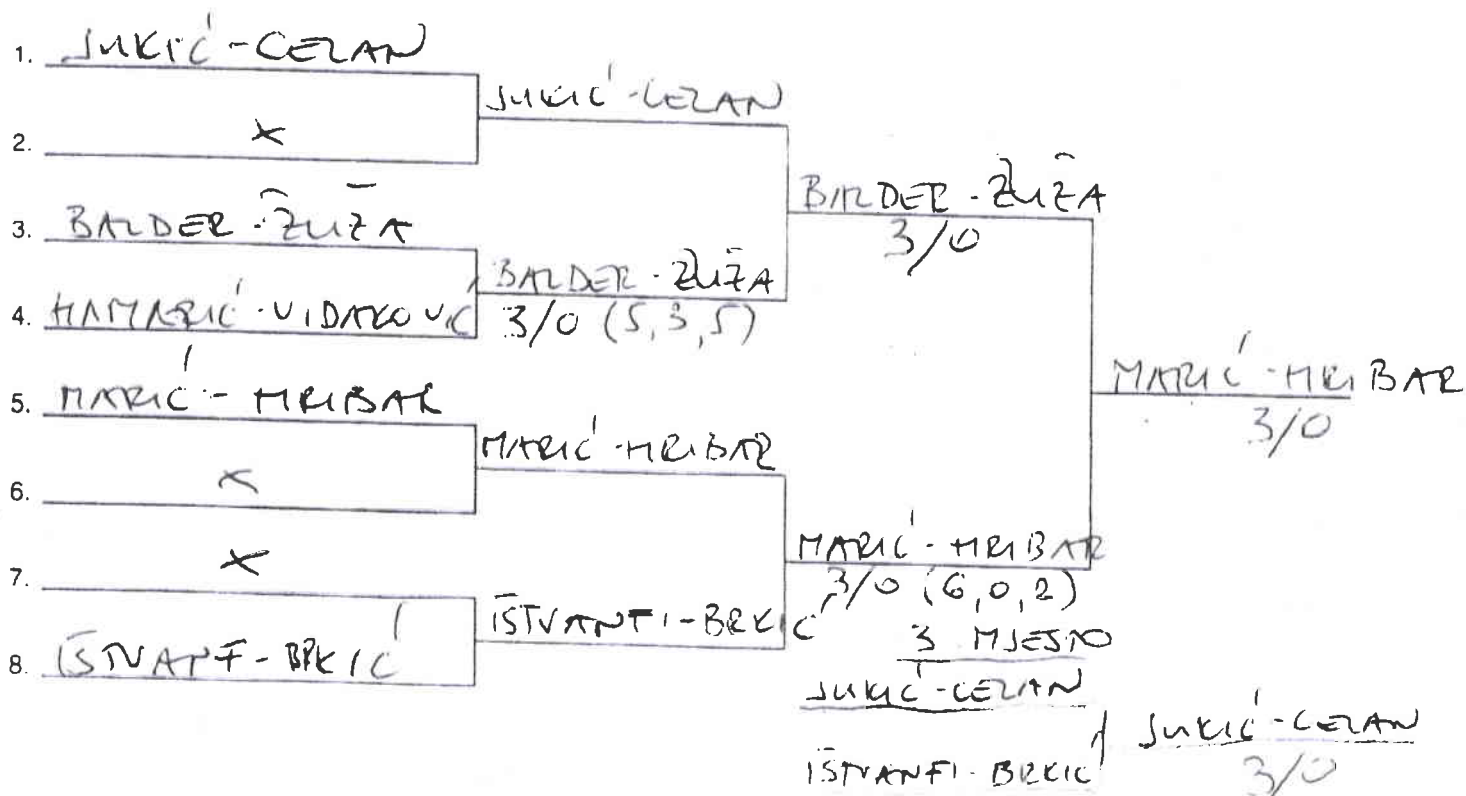 1. JUKIĆ-CEZAN
2. X
3. BALDER-ŽUŽA
4. HAMARIĆ-VIDAKOVIĆ
5. MARIĆ-HRIBAR
6. X
7. X
8. IŠTVANF-BRKIĆ
JUKIĆ-CEZAN
BALDER-ŽUŽA
3/0 (5,3,5)
MARIĆ-HRIBAR
IŠTVANFI-BRKIĆ
BALDER-ŽUŽA
3/0
MARIĆ-HRIBAR
3/0 (6,0,2)
MARIĆ-HRIBAR
3/0
3 MJESTO
JUKIĆ-CEZAN
IŠTVANFI-BRKIĆ
JUKIĆ-CEZAN
3/0